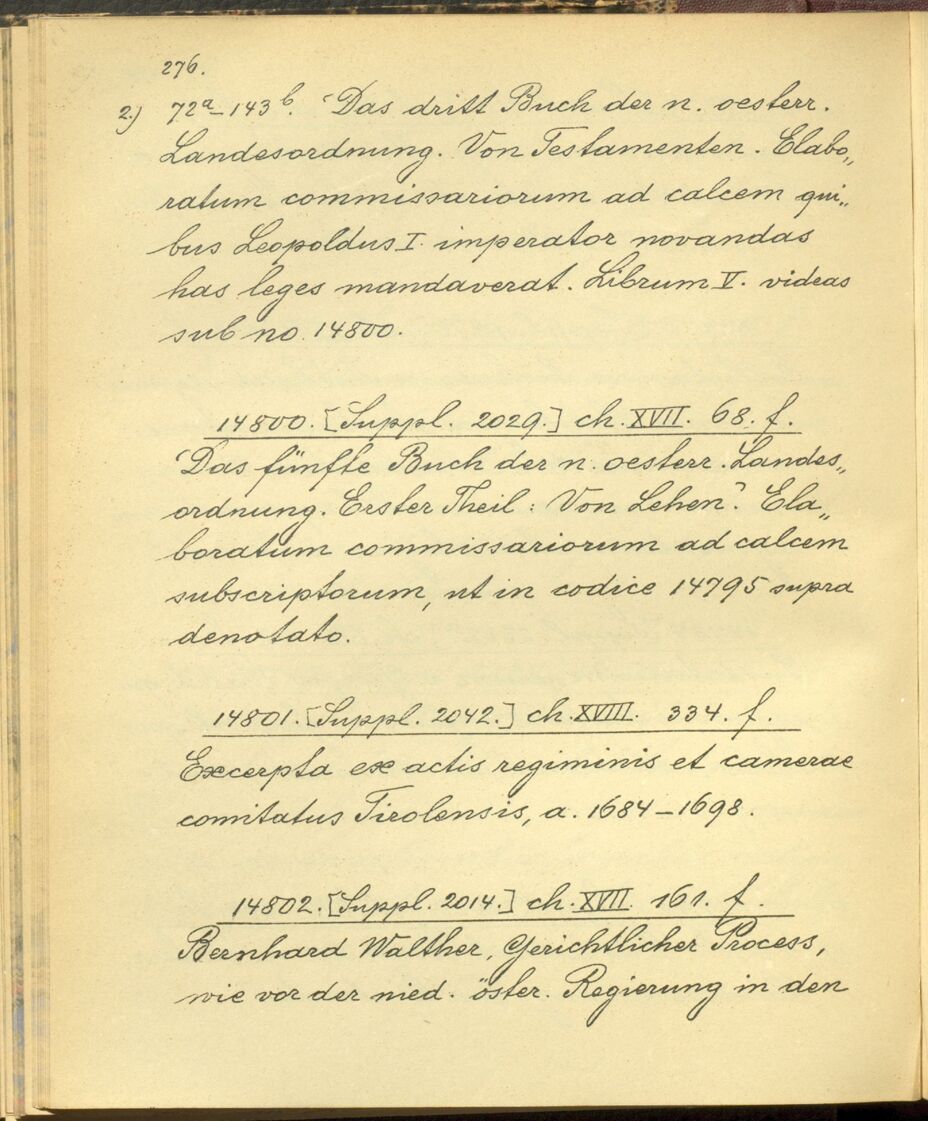 276.
2.) 72a–143b. 'Das dritt Buch der n. oesterr.
Landesordnung. Von Testamenten. Elabo„
ratum commissariorum ad calcem qui„
bus Leopoldus I. imperator novandas
has leges mandaverat. Librum V. videas
sub no. 14800.
14800. [Suppl. 2029.] ch. XVII. 68. f.
'Das fünfte Buch der n. oesterr. Landes„
ordnung. Erster Theil: Von Lehen'. Ela„
boratum commissariorum ad calcem
subscriptorum, ut in codice 14795 supra
denotato.
14801. [Suppl. 2042.] ch. XVIII. 334. f.
Excerpta ex actis regiminis et camerae
comitatus Tirolensis, a. 1684–1698.
14802. [Suppl. 2014.] ch. XVII. 161. f.
Bernhard Walther, Gerichtlicher Process,
wie vor der nied. öster. Regierung in den